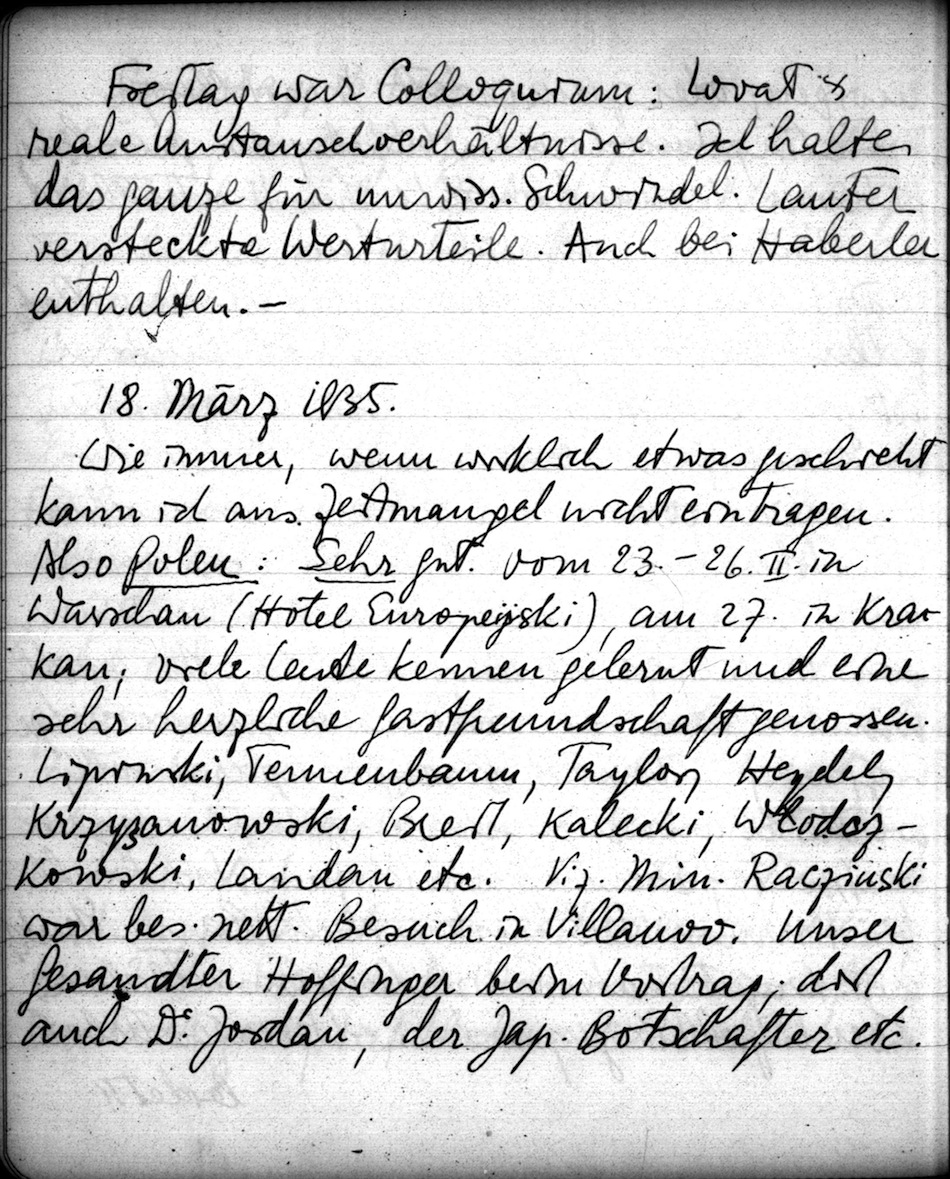 Freitag war Colloquium: Lovat's
reale Austauschverhältnisse. Ich halte
das ganze für unwiss. Schwindel. Lauter
versteckte Werturteile. Auch bei Haberler
enthalten.—
18. März 1935.
Wie immer, wenn wirklich etwas geschieht
kann ich aus Zeitmangel nicht eintragen.
Also Polen: Sehr gut. vom 23.–26. II. in
Warschau (Hotel Europejski), am 27. in Kra-
kau; viele Leute kennen gelernt und eine
sehr herzliche Gastfreundschaft genossen.
Lipinski, Tennenbaum, Taylor, Heydel,
Krzyzanowski, Breit, Kalecki, Wlodcz-
kowski, Landau etc. Viz. Min. Raczinski
war bes. nett. Besuch in Villanov. Unser
Gesandter Hoffinger beim Vortrag; dort
auch Dr. Jordan, der Jap. Botschafter etc.